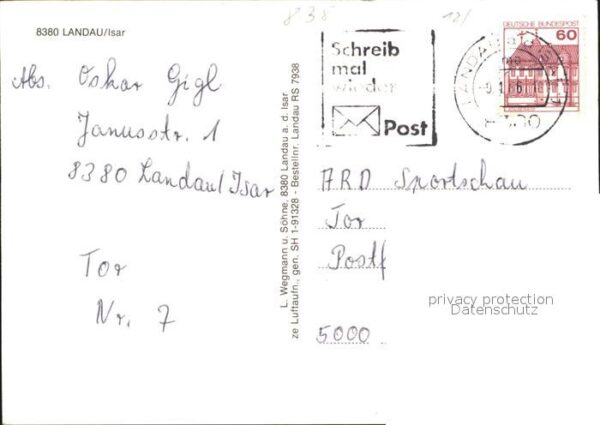 838
8380 LANDAU/Isar
Abs. Oskar Gigl
Janusstr. 1
8380 Landau/Isar
Tor
Nr. 7
L. Wegmann u. Söhne, 8380 Landau a. d. Isar
ze Luftaufn., gen. SH 1-91328 - Bestellnr. Landau RS 7938
Schreib
mal
wieder
Post
DEUTSCHE BUNDESPOST
60
LANDAU
ARD Sportschau
Tor
Postf
5000
privacy protection
Datenschutz